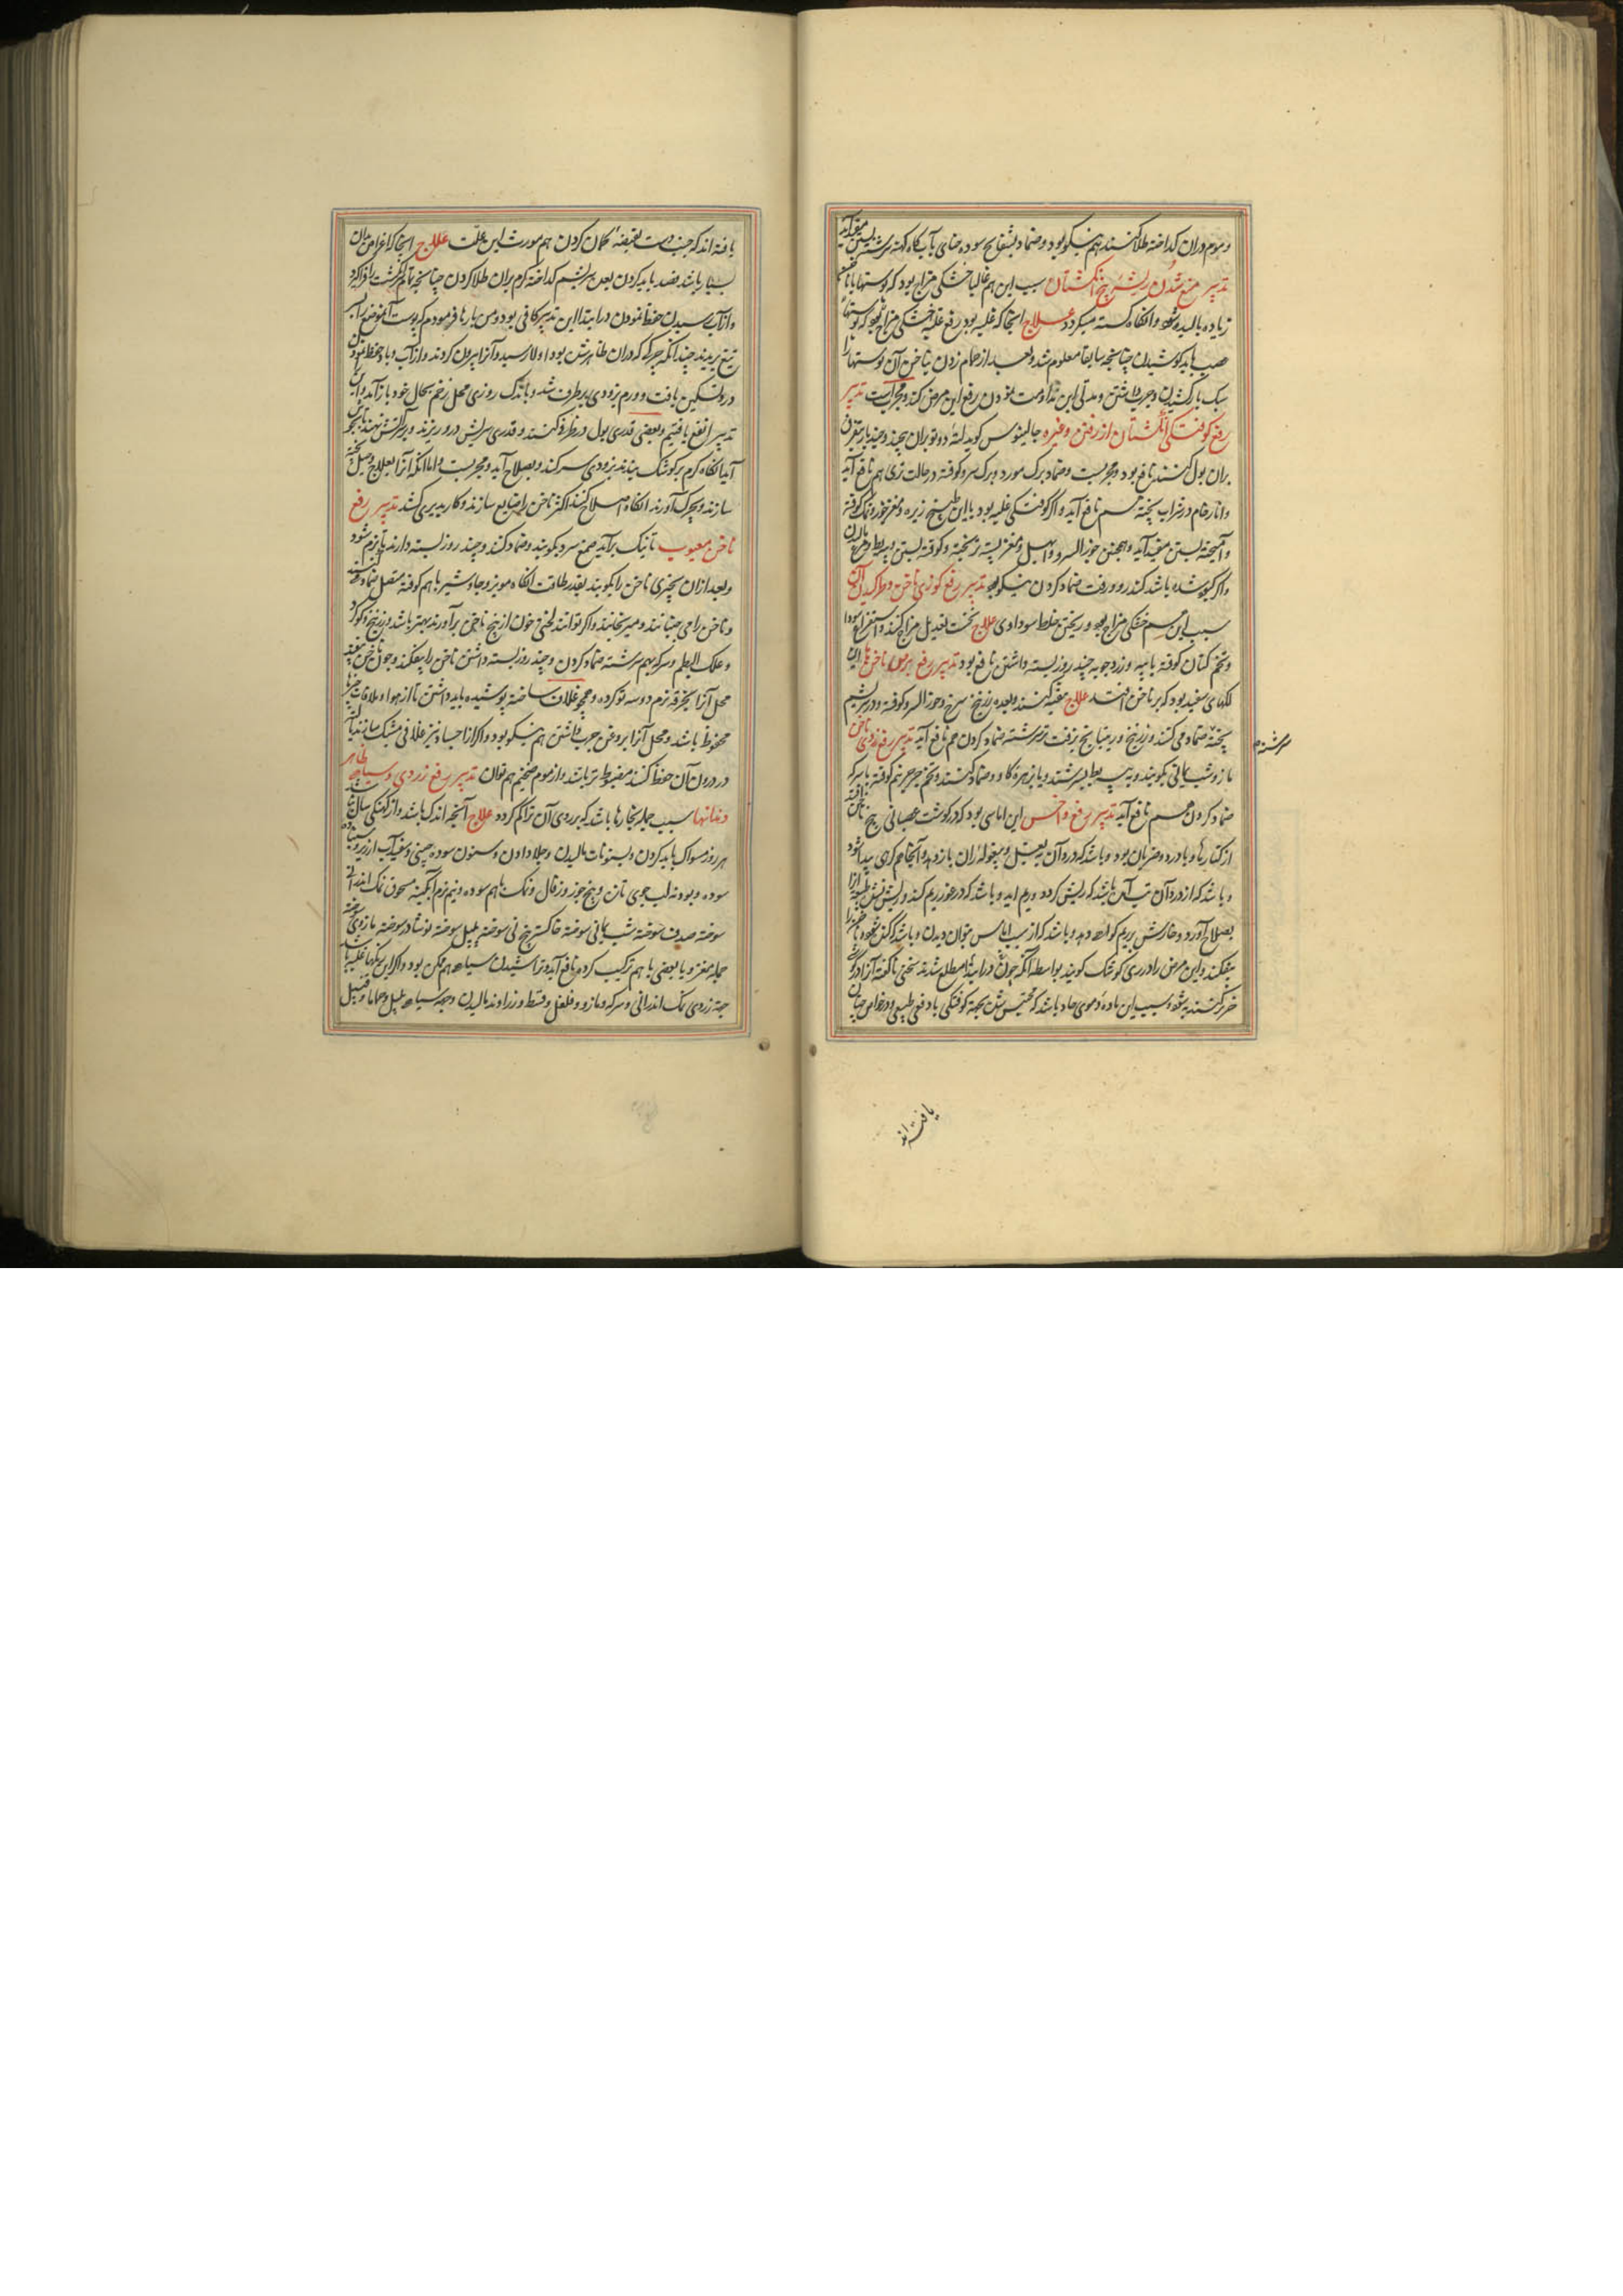 و موم دران کداخته طلا کنند هم نیکو بود و ضماد بسفایج سوده حنای بآب کاه کهنه سرشته
تدبیر منع شدن ریشهٔ بیخ انکشتان سبب این هم غالبا خشکی مزاج بود که پوستها
زیاده بالیده شود و انکاه کسسته میکردد علاج انجا که غلبه بود رفع غلبه خشکی مزاج
باید کوشیدن چنانچه سابقا معلوم شد و بعد از حمام زدن ناخن آن پوستها را
سبک باز کشیدن و چرب داشتن و مدتی این مداومت نمودن رفع این مرض کند و مجربست تدبیر
رفع کوفتکی انکشتان از رفتن و غیره جالینوس کوید لته دو تو بران پیچند و چند بار متفرق
بران بول کنند نافع بود و مجربست و ضماد برک مورد و برک سرو کوفته در حالت نری هم نافع آید
و انار خام در شراب پخته هم نافع آید و اکر کوفتکی غلبه بود با این طبیخ زیره و مغز جوز و نمک کوفته
و آمیخته بستن مفید آید و همچنین جوز السرو و ابهل و مغز پسته تر پخته و کوفته بستن
و اکر کبود شده باشد کندر و زفت ضماد کردن نیکو بود تدبیر رفع کوزی ناخن و طرکیدن آن
سبب این هم خشکی مزاج بود و ریختن خلط سوداوی علاج نخست تعدیل مزاج کنند و استفراغ سودا
و تخم کتان کوفته با پیه و زرد جوبه چند روز بسته داشتن نافع بود تدبیر رفع برص ناخن این
لکهای سفید بود که بر ناخن افتد علاج تنقیه کنند و بعده زرنیخ سرخ و جوز السرو کوفته و در سریشم
پخته ضماد می کنند و زرنیخ و ریتیانج بزفت تر سرشته ضماد کردن هم نافع آید تدبیر رفع زردی ناخن
سرشته
مازو و شب یمانی بکوبند و به پیه بط بسرشند و یا بزهره کاو و ضماد کنند و تخم جرجیر نرم کوفته با سرکه
ضماد کردن هم نافع آید تدبیر رفع داخس این اماسی بود که در کوشت عصبانی بیخ ناخن افتد
از کنارها و با درد و ضربان بود و باشد که درد آن ببغل و بیغوله ران باز دهد و آنجا هم کرهی پیدا شود
و باشد که از درد آن تب آید و باشد که ریش کردد و ریم اید و باشد که در غور ریم کند
بصلاح آورد و خارش بریم کواهی دهد و باشد که از سبب اماس نتوان دیدن و باشد که کنده شود و ناخن را
بیفکند و این مرض را در ری کوشک کویند بواسطه آنکه چون در ابتدا مطلع شدند سخنی ناکفته آنرا در کوش
خر کنند به شود و سبب این مادهٔ دموی حاد باشد که محتبس شدن بجهة کوفتکی یا دفع طبیعی و در خواص چنان
یافته اند
یافته اند که جنب دست بقبضهٔ کمان کردن هم مورث این علت علاج انجا که اعراض بدان
بسیار باشد فصد باید کردن بعد سریشم کداخته کرم بران طلا کردن چنانچه تمام انکشت را فراکیرد
و از آب رسیدن حفظ نمودن در ابتدا این تدبیر کافی بود و من بارها فرمودم که پوست آن موضع را بسر
تیغ بریدند چندانکه چرک که دران ظاهرش بود اولا رسید و آنرا بیرون کردند و از آب و باد حفظ نمودند
درد تسکین یافت و ورم بزودی برطرف شد و باندک روزی محل زخم بحال خود باز آمد و این
تدبیر انفع یافتیم و بعضی قدری بول در ظرفی کنند و قدری سریش در و ریزند و بر آتش نهند تا بجوش
آید انکاه کرم بر کوشک بندند بزودی سر کند و بصلاح آید و مجربست و اما انکه آنرا بعلاج
سازند و بچرک آورند انکاه اصلاح کنند اکثر ناخن را ضایع سازند و کار بدیری کشد تدبیر رفع
ناخن معیوب تا نیک برآید صمغ سرد بکوبند و ضماد کنند و چند روز بسته دارند تا نرم شود
و بعد ازان بچیزی ناخن را بکوبند بقدر طاقت انکاه مویز و جاوشیر با هم کوفته متصل ضماد کنند
و ناخن را می جنبانند و میرنجانند و اکر توانند لختی خون از بیخ ناخن برآورند بهتر باشد و زرنیخ و کوکرد
و علک البطم و سرکه بهم سرشته ضماد کردن و چند روز بسته داشتن ناخن را بیفکند و چون ناخن بیفتد
محل آنرا بخرقه نرم دو سه تو کرده و همچو غلاف ساخته پوشیده باید داشتن تا از هوا و ملاقات چیزها
محفوظ باشد و محل آنرا بروغن چرب داشتن هم نیکو بود و اکر از اجساد نیز غلافی مشبک سازند تا
در درون آن حفظ کنند مضبوط تر باشد و از موم ضخیم هم توان تدبیر رفع زردی و سیاهی ظاهر
دندانها سبب جمله بخارها باشد که بر روی آن تراکم کردد علاج آنچه اندک باشد و از کهنکی سال نباشد
هر روز مسواک باید کردن و بسنونات مالیدن و جلا دادن و سنون سوده چینی و سفیداب ارزیز و سنباده
سوده و پودنه لب جوی تازه و بیخ جوز و زغال و نمک با هم سوده و نیم نرم آبکینه مسحوق نمک اندرانی
سوخته صدف سوخته شب یمانی سوخته خاکستر بیخ نی سوخته پلپل سوخته نوشادر سوخته مازوی سوخته
جمله مغزو یا بعضی با هم ترکیب کرده نافع آید و تراشیدن سیاهی هم ممکن بود و اکر این رنکها غلبه باشد
جهة زردی نمک اندرانی و سرکه و مازو و فلفل و قسط و زراوند مالیدن و جهة سیاهی پلپل و حماما و سنبل